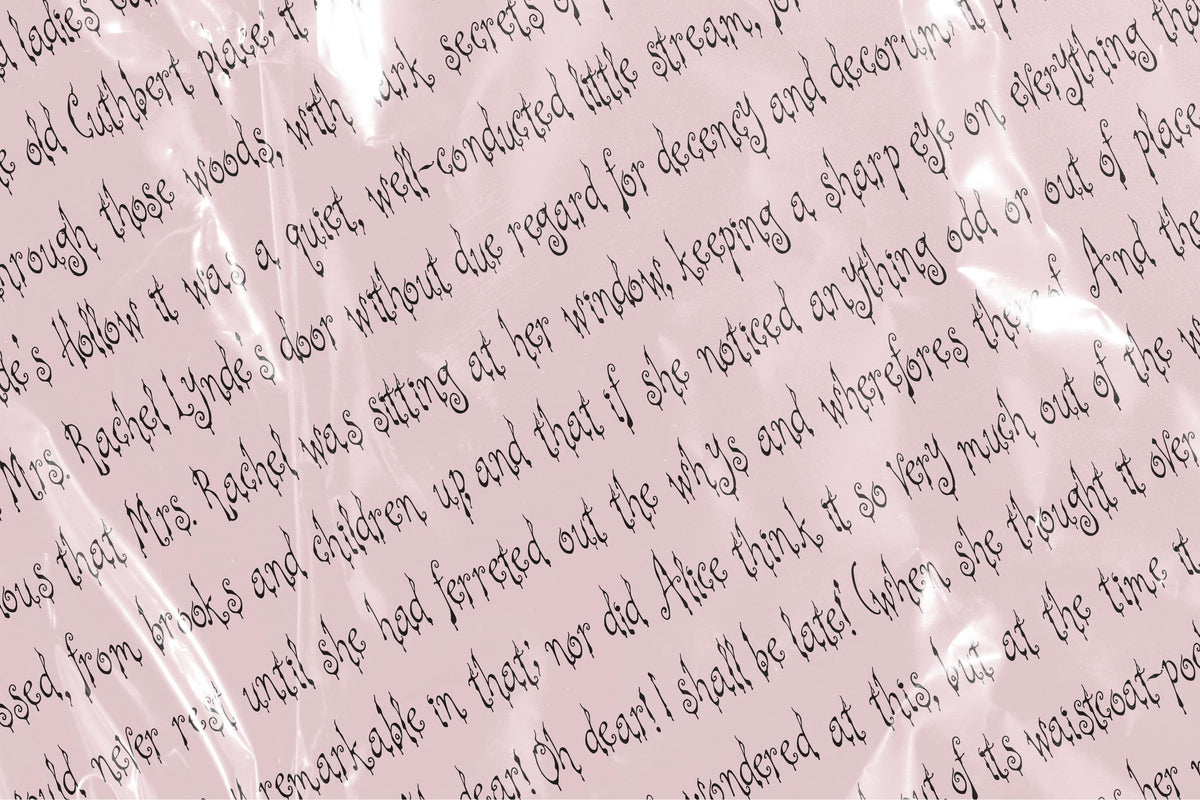 ladies
old Cuthbert place, it
hrough those woods, with dark secrets of p
de's Hollow it was a quiet, well-conducted little stream,
Mrs. Rachel Lynde's door without due regard for decency and decorum it pr
ious that Mrs. Rachel was sitting at her window, keeping a sharp eye on everything tha
ssed, from brooks and children up, and that if she noticed anything odd or out of place
ould never rest until she had ferreted out the whys and wherefores thereof. And the
remarkable in that; nor did Alice think it so very much out of the w
dear! Oh dear! I shall be late!' (when she thought it over
wondered at this, but at the time it
out of its waistcoat-po
her